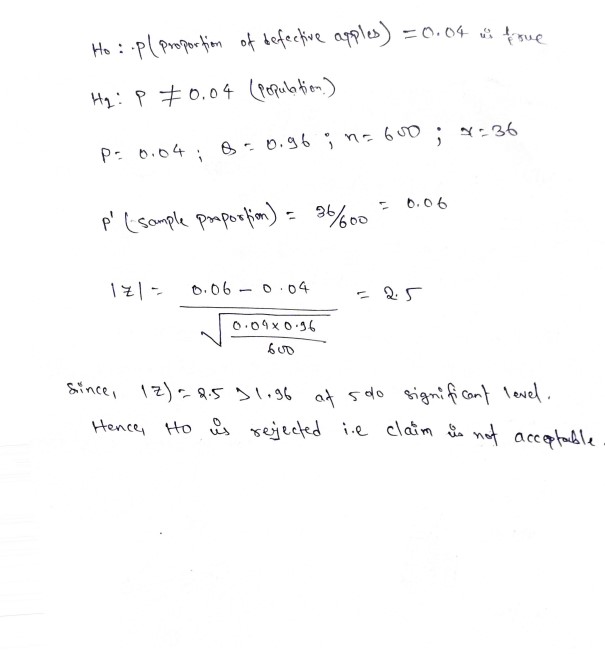 Ho : P( proportion of defective apples) = 0.04 is true
H1: P ≠ 0.04 (population)
P= 0.04 ; Q = 0.96 ; n= 600 ; x=36
p' (sample proportion) = 36/600 = 0.06
|Z| = 0.06 - 0.04 / √ 0.04x0.96 / 600 = 2.5
Since, |Z| = 2.5 > 1.96 at 5% significant level.
Hence, Ho is rejected i.e claim is not acceptable.